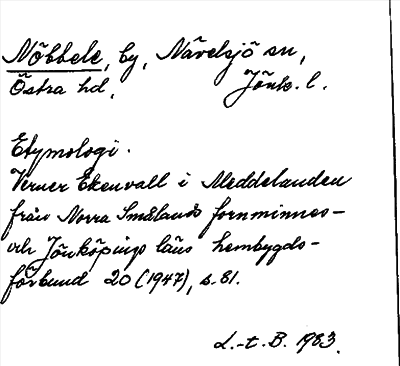 Nöbbele, by, Nävelsjö sn,
Östra hd, Jönk. l.
Etymologi.
Verner Ekenvall i Meddelanden
från Norra Smålands fornminnes-
och Jönköpings läns hembygds-
förbund 20 (1947), s. 81.
L.-t. B. 1983.